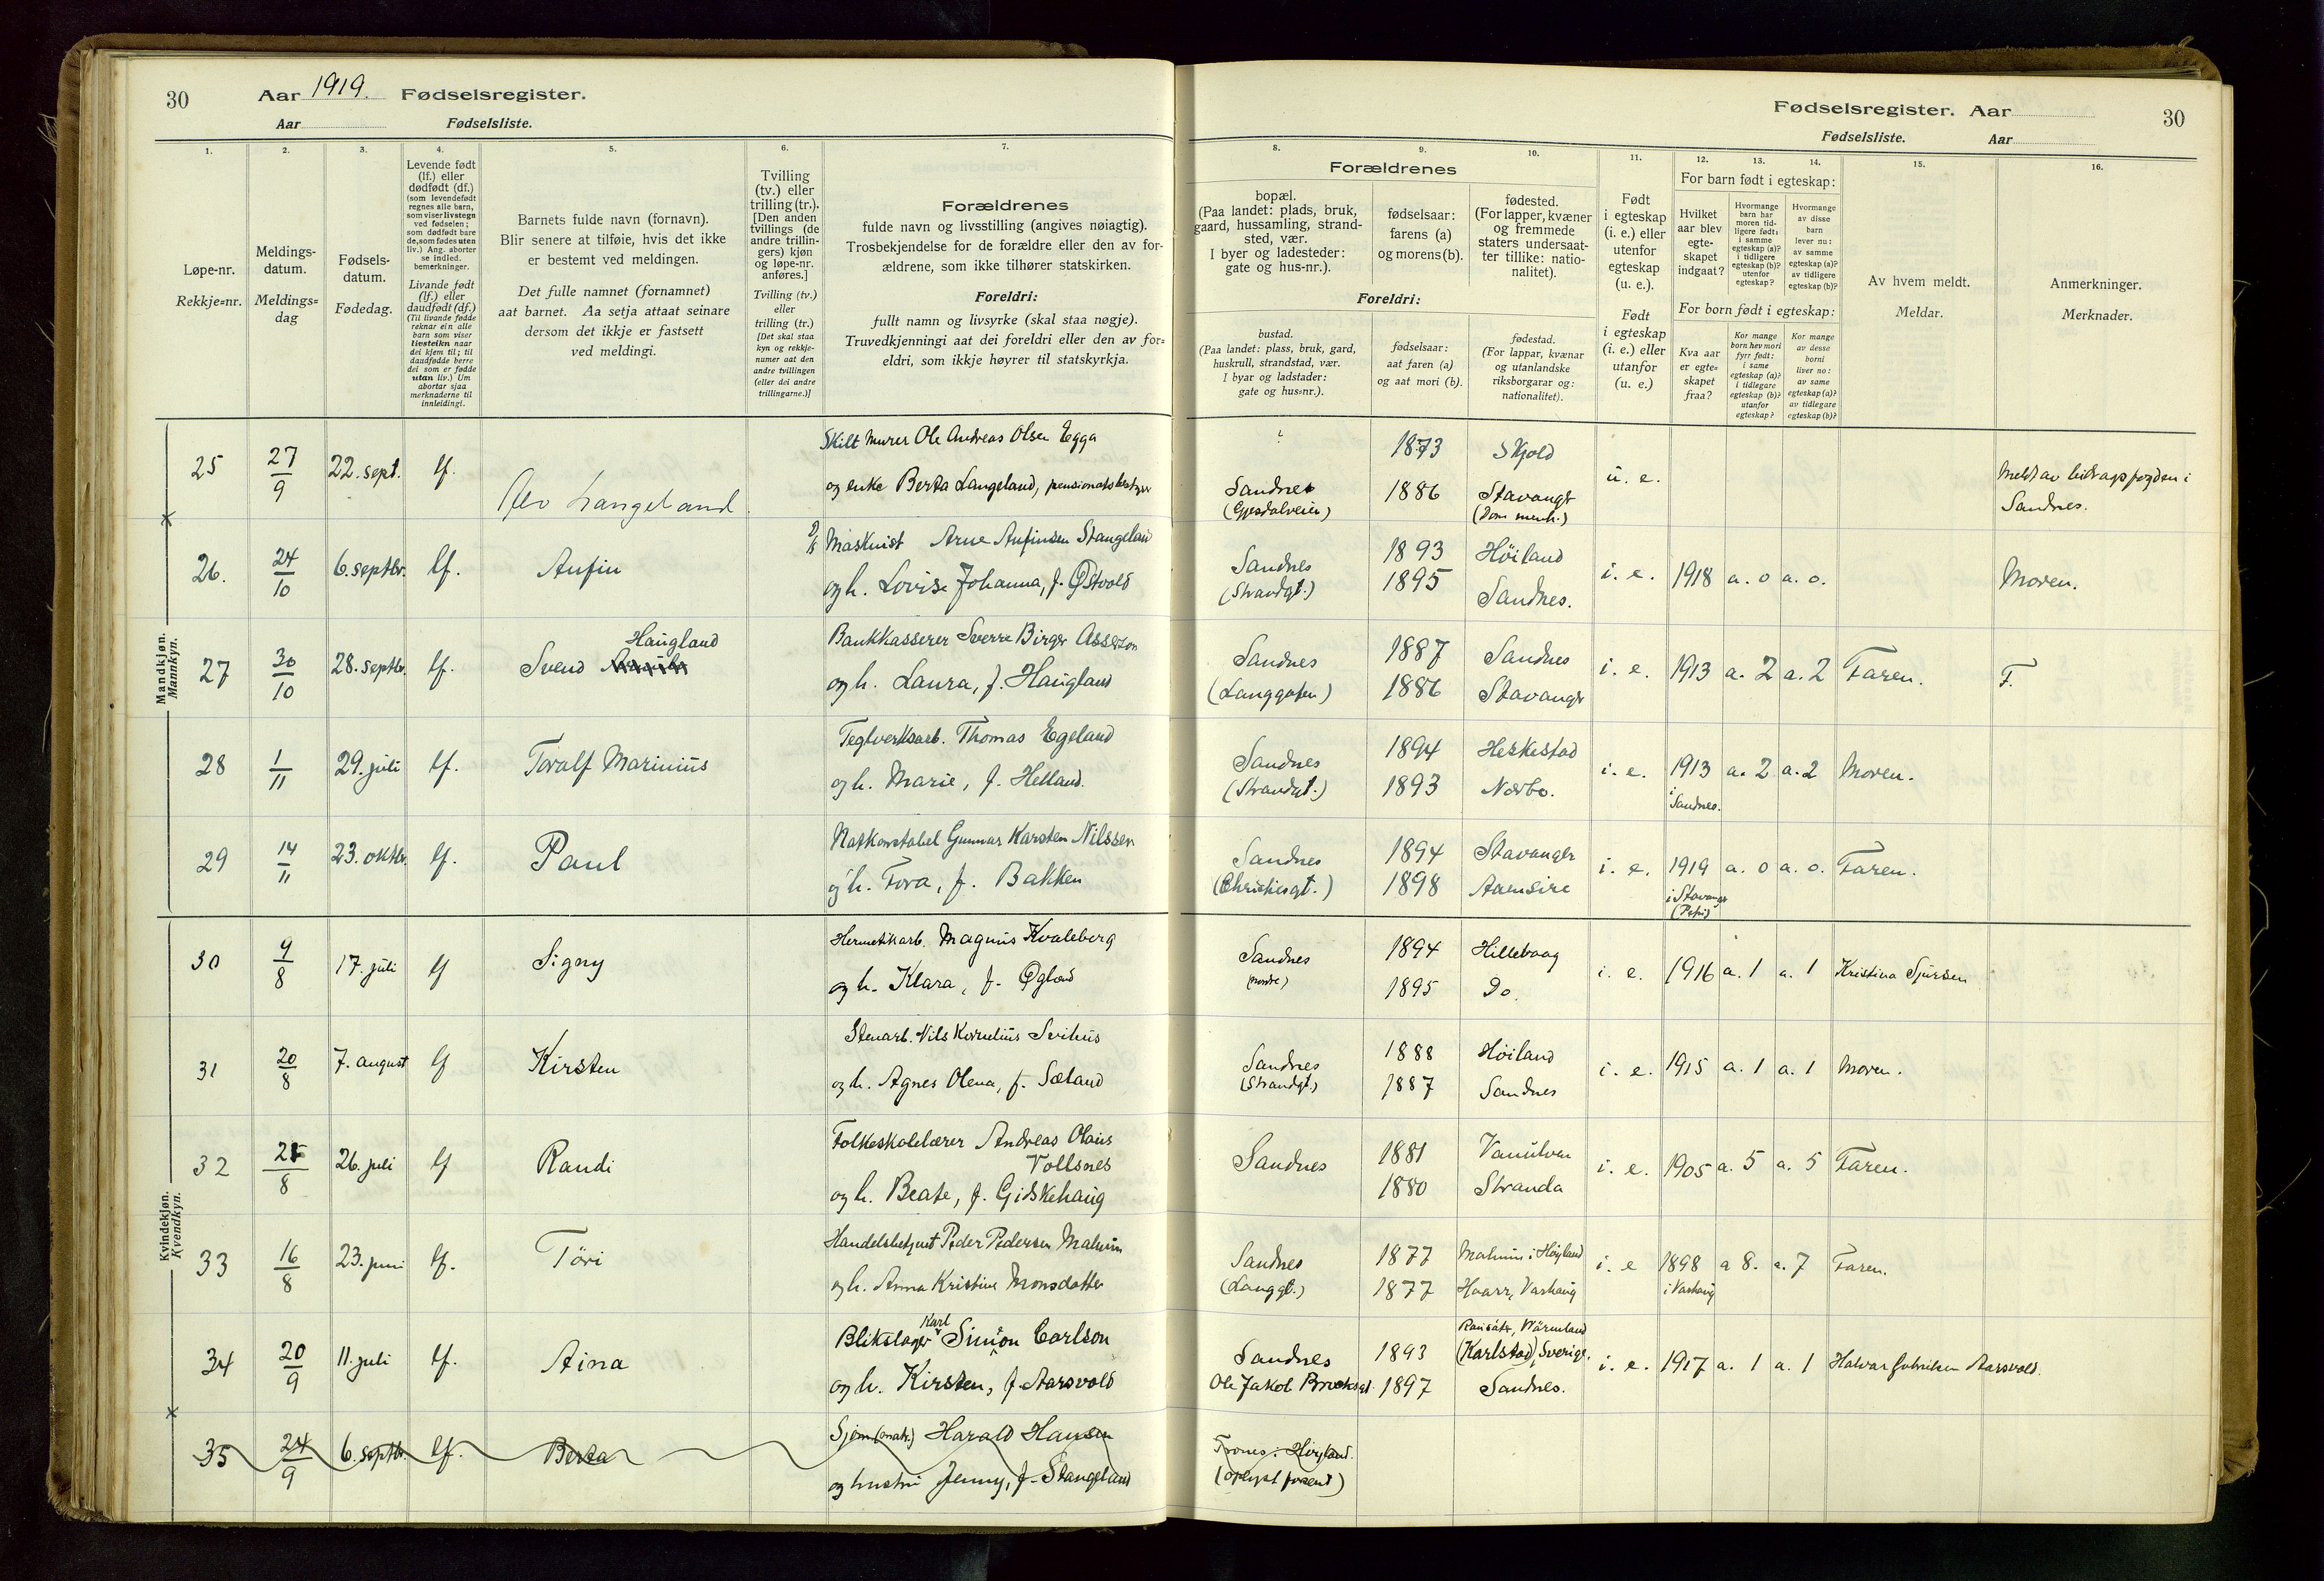 30 Aar 1919. Fødselsregister.
Aar Fødselsliste.
Fødselsregister. Aar 30
Fødselsliste. Aar
1. 2. 3. 4. 5. 6. 7. 8. 9. 10. 11. 12. 13. 14. 15. 16.
Løpe-nr.
Rekkje=nr.
Meldings-
datum.
Meldings=
dag
Fødsels-
datum.
Fødedag.
Levende født
(lf.) eller
dødfødt (df.)
(som levendefødt
regnes alle barn,
som viser livstegn
ved fødselen;
som dødfødt bare
de, som fødes uten
liv.) Ang. aborter
se indled.
bemerkninger.
Livande født
(lf.) eller
daudfødt (df.)
(Til livande fødde
reknar ein alle
barn som viser
livsteikn naar
dei kjem til; til
daudfødde berre
dei som er fødde
utan liv.) Um
abortar sjaa
merknaderne til
innleidingi.
Barnets fulde navn (fornavn).
Blir senere at tilføie, hvis det ikke
er bestemt ved meldingen.
Det fulle namnet (fornamnet)
aat barnet. Aa setja attaat seinare
dersom det ikkje er fastsett
ved meldingi.
Tvilling
(tv.) eller
trilling (tr.).
[Den anden
tvillings (de
andre trillin-
gers) kjøn
og løpe-nr.
anføres.]
Tvilling (tv.)
eller
trilling (tr.)
[Det skal staa
kyn og rekkje-
numer aat den
andre tvillingen
(eller dei andre
trillingarne.)]
Forældrenes
fulde navn og livsstilling (angives nøiagtig).
Trosbekjendelse for de forældre eller den av for-
ældrene, som ikke tilhører statskirken.
Foreldri:
fullt namn og livsyrke (skal staa nøgje).
Truvedkjenningi aat dei foreldri eller den av for=
eldri, som ikkje høyrer til statskyrkja.
Forældrenes
bopæl.
(Paa landet: plads, bruk,
gaard, hussamling, strand-
sted, vær.
I byer og ladesteder:
gate og hus-nr.).
fødselsaar:
farens (a)
og morens (b).
fødested.
(For lapper, kvæner
og fremmede
staters undersaat-
ter tillike: natio-
nalitet).
Foreldri:
bustad.
(Paa landet: plass, bruk, gard,
huskrull, strandstad, vær.
I byar og ladstader:
gate og hus=nr.).
fødselsaar:
aat faren (a)
og aat mori (b).
fødestad.
(For lappar, kvænar
og utanlandske
riksborgarar og:
nationalitet).
Født
i egteskap
(i. e.) eller
utenfor
egteskap
(u. e.).
Født
i egteskap
(i. e.) eller
utanfor
(u. e.)
For barn født i egteskap:
Hvilket
aar blev
egte-
skapet
indgaat?
Hvormange
barn har
moren tid-
ligere født:
i samme
egteskap (a)?
i tidligere
egteskap (b)?
utenfor
egteskap?
Hvormange
av disse
barn
lever nu:
av samme
egteskap (a)?
av tidligere
egteskap (b)?
For born født i egteskap:
Kva aar
er egte=
skapet
fraa?
Kor mange
born hev mori
fyrr født:
i same
egteskap (a)?
i tidlegare
egteskap (b)?
utanfor
egteskap?
Kor mange
av desse
borni
liver no:
av same
egteskap (a)?
av tidlegare
egteskap (b)?
Av hvem meldt.
Meldar.
Anmerkninger.
Merknader.
Mandkjøn.
Mannkyn.
25 27/9 22. sept. lf. Langeland
Skilt Murer Ole Andreas Olsen Egga
og enke Berta Langeland,
Sandnes (Gjesdalveien) 1873 1886 Skjold Stavanger u. e.
Meldt av bidragsfogden i
Sandnes.
26. 24/10 6. septbr. lf. Anfin
Maskinist Arne Anfinsen Stangeland
og h. Lovise Johanna, f. Østvold
Sandnes (Strandgt.) 1893 1895 Høiland Sandnes. i. e. 1918 a. 0 a. 0. Moren.
27 30/10 28. septbr. lf. Svend Haugland
Bankkasserer Sverre Birger Asserson
og h. Laura, f. Haugland
Sandnes (Langgaten) 1887 1886 Sandnes Stavanger i. e. 1913 a. 2 a. 2 Faren. F.
28 1/11 29. juli lf. Toralf Marinius
Teglverksarb. Thomas Egeland
og h. Marie, f. Helland.
Sandnes (Strandgt.) 1894 1893 Heskestad Nærbo. i. e. 1913 i Sandnes. a. 2 a. 2 Moren.
29 14/11 23. oktbr. lf. Paul
Natkonstabel Gunnar Karsten Nilssen
og h. Tora, f. Bakken
Sandnes (Christiesgt.) 1894 1898 Stavanger Aaensire i. e. 1919 i Stavanger (Petri) a. 0 a. 0. Faren.
Kvindekjøn.
Kvendkyn.
30 9/8 17. juli lf Signy
Hermetikarb. Magnus Kvaleberg
og h. Klara, f. Øglænd
Sandnes 1894 1895 Hillevaag Do. i. e. 1916 a. 1 a. 1 Kristina Sjursen
31 20/8 7. august lf Kirsten
Stenarb. Nils Kornelius Svihus
og h. Agnes Olena, f. Sæland
Sandnes (Strandgt.) 1888 1887 Høiland Sandnes i. e. 1915 a. 1 a. 1 Moren.
32 25/8 26. juli lf Randi
Folkeskolelærer Andreas Olaus
Vollsnes
og h. Beate, f. Gidskehaug
Sandnes 1881 1880 Vanulven Stranda i. e. 1905 a. 5 a. 5 Faren.
33 16/8 23. juni lf. Turi
Handelsbetjent Peder Pedersen Malmin
og h. Anna Kristine Monsdatter
Sandnes (Langgt.) 1877 1877 Malmin i Høyland Haarr, Varhaug i. e 1898 i Varhaug a 8. a. 7 Faren.
34 20/9 11. juli lf. Aina
Blikslager Karl Simon Carlson
og h. Kirsten, f. Aarsvold
Sandnes Ole Jakob Brochsgt. 1893 1897 Ransäter, Wärmland
(Karlstad), Sverige. Sandnes. i. e. 1917 a. 1 a. 1 Halvar Aarsvold.
35 24/9 6. septbr. lf. Berta
Sjøm. (matr.) Harald Hansen
og hustru Jenny, f. Stangeland
Trones i Høyland.